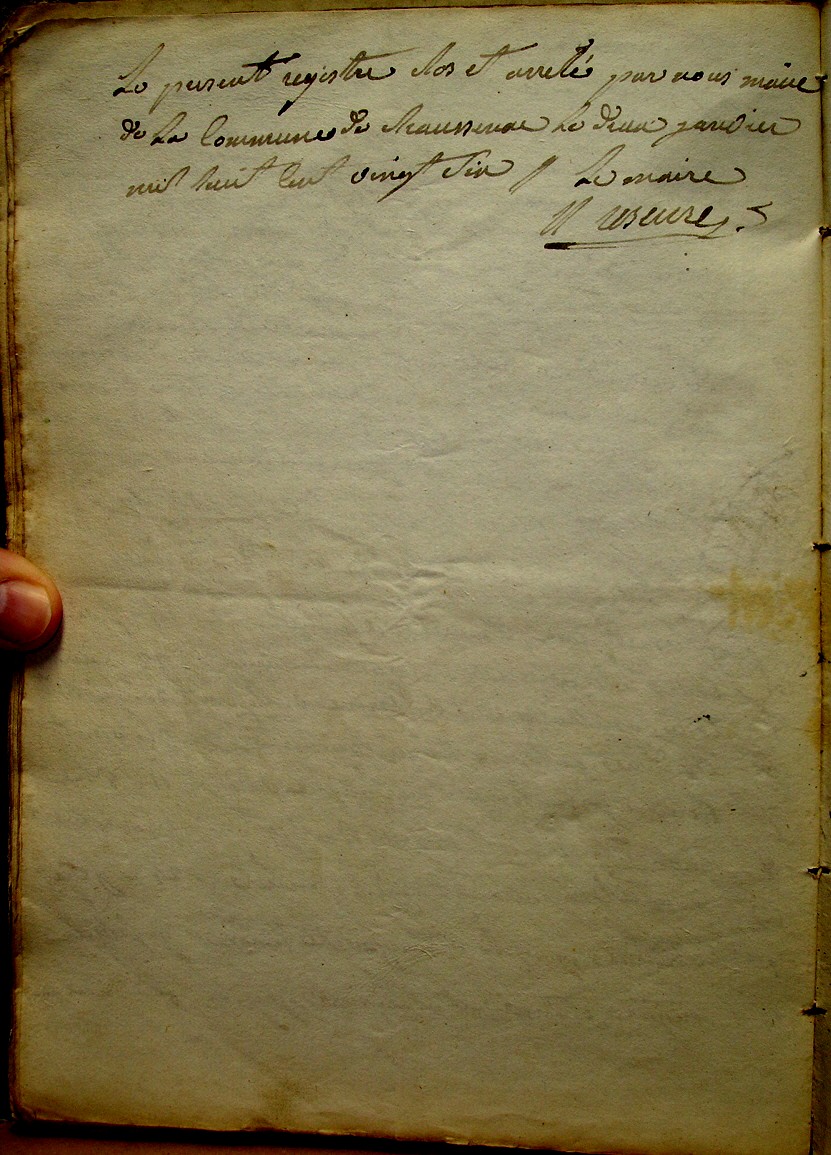 Le persent registre clos et arreté par nous maire
de La Commune de Chaussenac Le deux janvier
mil huit cent vingt six // Le maire